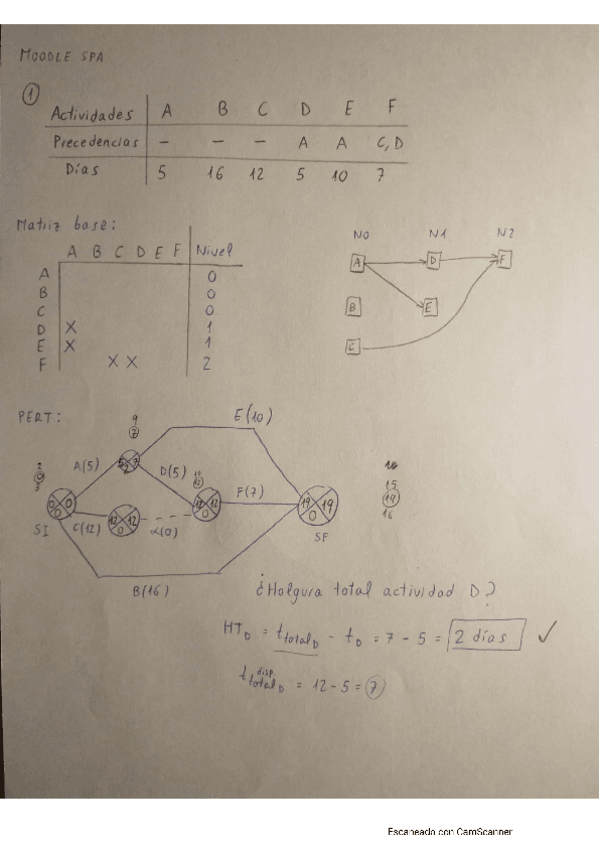 MOODLE SPA
1
Actividades A B C D E F
Precedencias - - - A A C, D
Días 5 16 12 5 10 7
Matriz base:
A B C D E F Nivel
A 0
B 0
C 0
D X 1
E X 1
F X X 2
N0 N1 N2
A D F
B E
C
PERT:
E(10)
9
7
A(5)
5 7
2
D(5)
F(7)
0 0
0
C(12)
12 12
0
α(0)
12 12
0
19 19
0
SI
SF
B(16)
15
19
16
¿Holgura total actividad D?
HT_D = t_total_D - t_D = 7 - 5 = 2 días ✓
t_total_D^disp. = 12 - 5 = 7
Escaneado con CamScanner